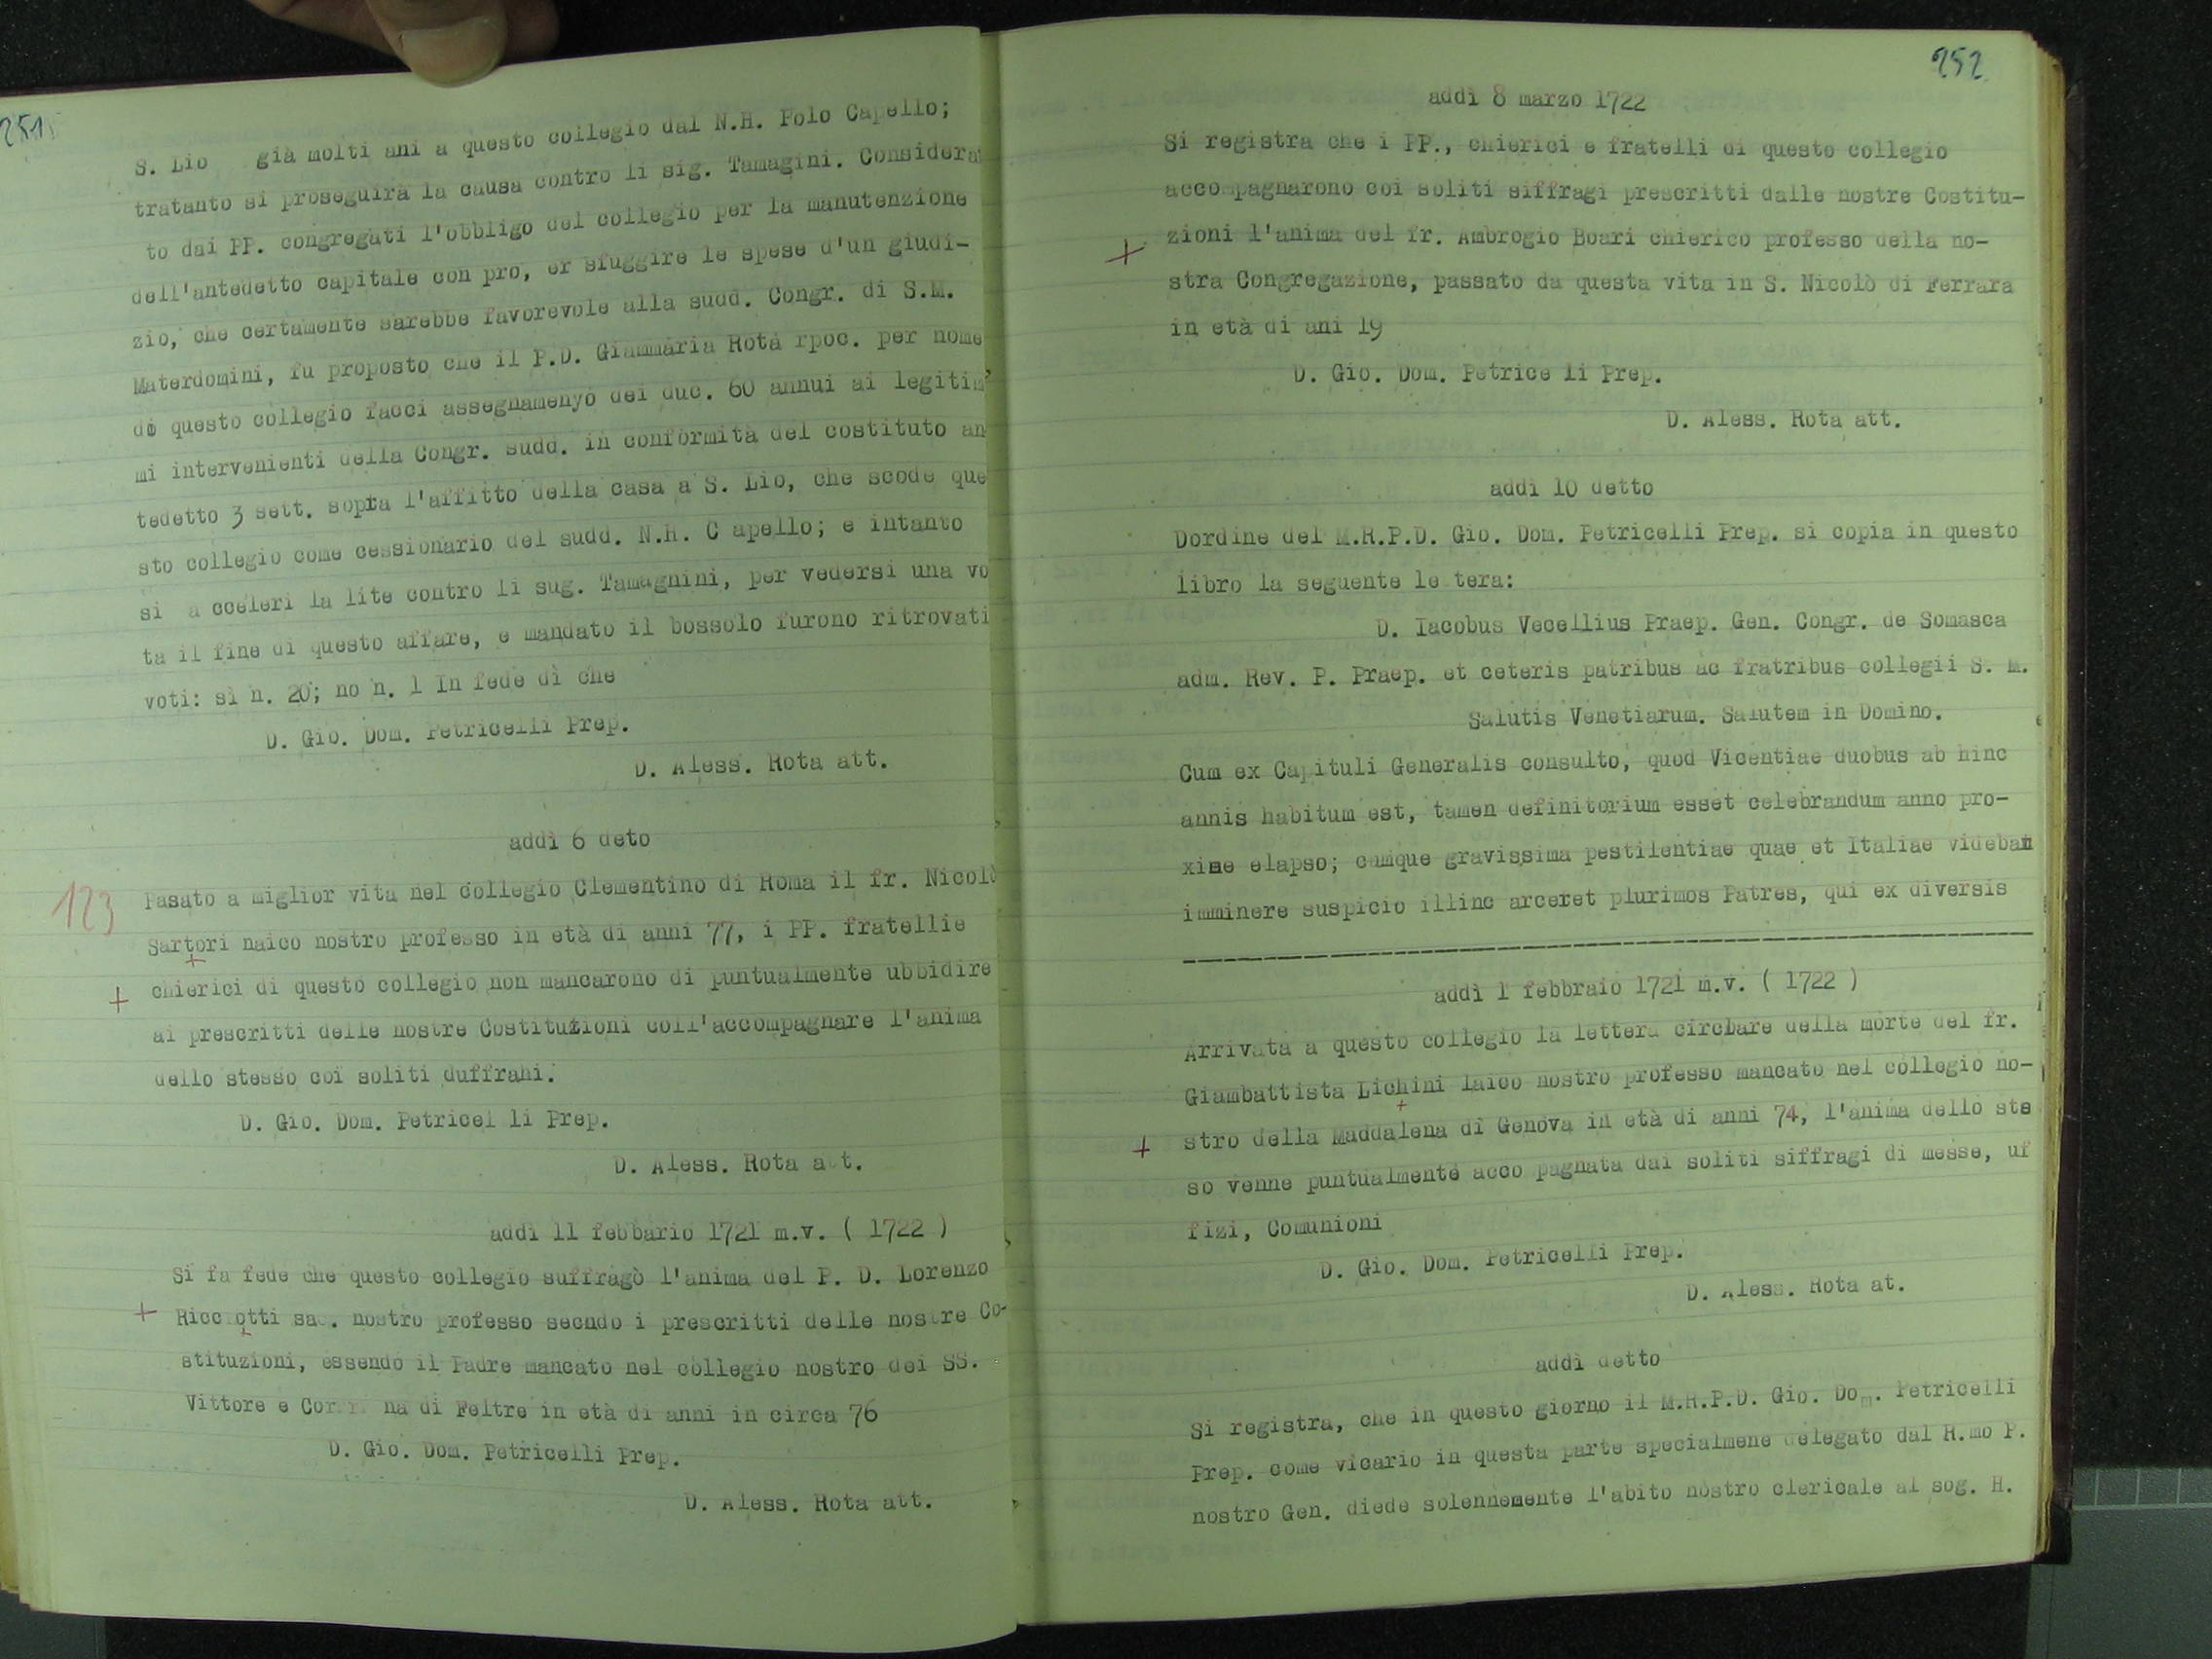 251
S. Lio già molti ani a questo collegio dal N.H. Polo Capello;
tratanto si proseguirà la causa contro li sig. Tamagini. Considera
to dai PP. congregati l'obbligo del collegio per la manutenzione
dell'antedetto capitale con pro, er sfuggire le spese d'un giudi-
zio, che certamente sarebbe favorevole alla sudd. Congr. di S.M.
Materdomini, fu proposto che il P.D. Giammaria Rota rpoc. per nome
di questo collegio facci assegnamenyo dei duc. 60 annui ai legitim
mi intervenienti della Congr. sudd. in conformità del costituto an
tedetto 3 sett. sopra l'affitto della casa a S. Lio, che scode que
sto collegio come cessionario del sudd. N.H. C apello; e intanto
si a cceleri la lite contro li sug. Tamagnini, per vedersi una vo
ta il fine di questo affare, e mandato il bossolo furono ritrovati
voti: sì n. 20; no n. 1 In fede dì che
D. Gio. Dom. Petricelli Prep.
D. Aless. Rota att.
addì 6 deto
123
Pasato a miglior vita nel collegio Clementino di Roma il fr. Nicolò
Sartori naico nostro professo in età di anni 77, i PP. fratellie
+
+ chierici di questo collegio non mancarono di puntualmente ubbidire
ai prescritti delle nostre Costituzioni coll'accompagnare l'anima
dello stesso coi soliti duffrahi.
D. Gio. Dom. Petricel li Prep.
D. Aless. Rota att.
addì 11 febbario 1721 m.v. ( 1722 )
Si fa fede che questo collegio suffragò l'anima del P. D. Lorenzo
+ Ricciotti sac. nostro professo secndo i prescritti delle nostre Co-
+
stituzioni, essendo il Padre mancato nel collegio nostro dei SS.
Vittore e na di Feltre in età di anni in circa 76
D. Gio. Dom. Petricelli Prep.
D. Aless. Rota att.
252
addì 8 marzo 1722
Si registra che i PP., chierici e fratelli di questo collegio
acco pagnarono coi soliti siffragi prescritti dalle nostre Costitu-
+ zioni l'anima del fr. Ambrogio Boari chierico professo della no-
stra Congregazione, passato da questa vita in S. Nicolò di Ferrara
in età di ani 19
D. Gio. Dom. Petrice li Prep.
D. Aless. Rota att.
addì 10 detto
Dordine del M.R.P.D. Gio. Dom. Petricelli Prep. si copia in questo
libro la seguente le tera:
D. Iacobus Vecellius Praep. Gen. Congr. de Somasca
adm. Rev. P. Praep. et ceteris patribus ac fratribus collegii S. M.
Salutis Venetiarum. Salutem in Domino.
Cum ex Capituli Generalis consulto, quod Vicentiae duobus ab hinc
annis habitum est, tamen definitorium esset celebrandum anno pro-
xime elapso; cumque gravissima pestilentiae quae et Italiae videbat
imminere suspicio illinc arceret plurimos Patres, qui ex diversis
------------------------------------------------------------
addì 1 febbraio 1721 m.v. ( 1722 )
Arrivata a questo collegio la lettera circlare della morte del fr.
Giambattista Lichini laico nostro professo mancato nel collegio no-
+
+ stro della Maddalena di Genova in età di anni 74, l'anima dello ste
so venne puntualmente acco pagnata dai soliti siffragi di messe, uf
fizi, Comunioni
D. Gio. Dom. Petricelli Prep.
D. Aless. Rota at.
addì detto
Si registra, che in questo giorno il M.R.P.D. Gio. Dom. Petricelli
Prep. come vicario in questa parte specialmene delegato dal R.mo P.
nostro Gen. diede solennemente l'abito nostro clericale al sog. H.